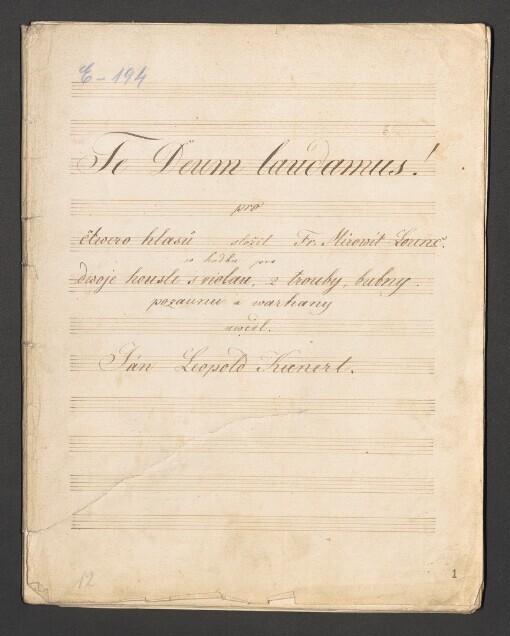 E-194
Te Deum laudamus!
pro
čtwero hlasů složil Fr. Mirowít
dwoje housle s violau, 2 trouby, bubny.
pozaunu a warhany
uwedl.
Ján Leopold Kunert.
12
1